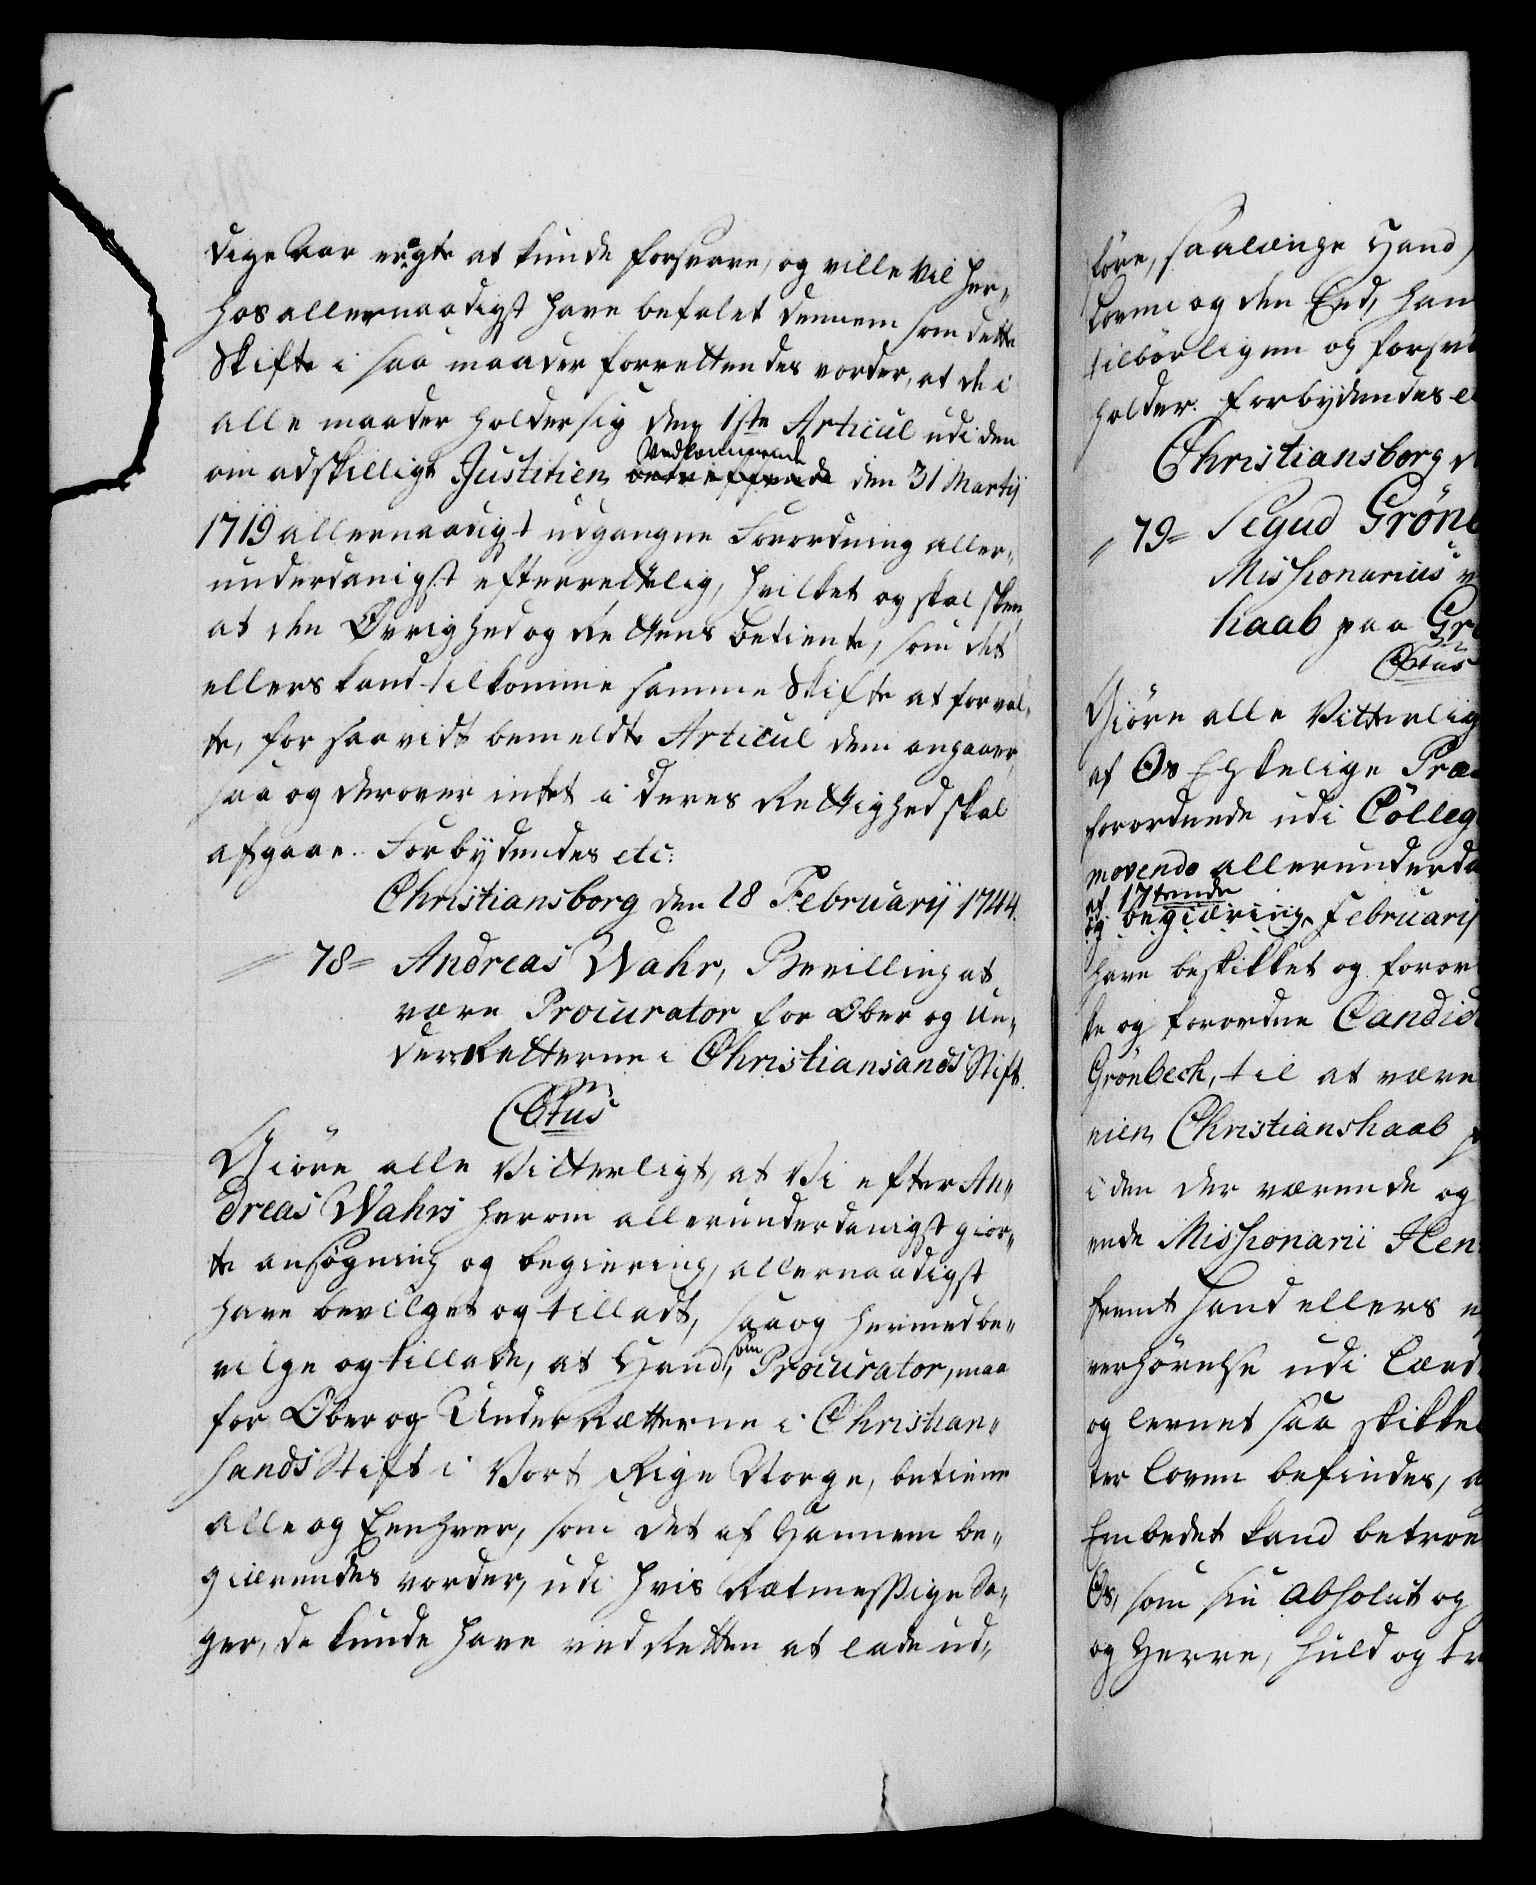 dige Aar eragte at kunde forsvare, og ville Vil her„
hos allernaadigst have befalet dennem som dette
Skifte i saa maader forrettendes vorder, at de i
alle maader holder sig den 1ste Articul udi den
om adskilligt Justitien Vedkommende den 31 Martij
1719 allernaadigst udgangne Forordning aller„
underdanigst efterrettelig, hvilket og skal skee,
at den Øvrighed og Rettens betiente, som det
ellers kand tilkomme samme Skifte at forval„
te, for saavidt bemeldte Articul dem angaaer,
saa og derover intet i deres Rettighed skal
afgaae. Forbydendes etc:
Christiansborg den 28 Februarij 1744.
78= Andreas Wahr, Bevilling at
være Procurator for Ober og Un„
der Retterne i Christiansands Stift.
C6tus
Giøre alle Vitterligt, at Vi efter An„
dreas Wahrs herom allerunderdanigst gior„
te ansøgning og begiering, allernaadigst
have bevilget og tilladt, saa og hermed be„
vilge og tillade, at Hand, som Procurator, maa
for Ober og Under Rætterne i Christian„
sands Stift i Vort Rige Norge, betiene
alle og Eenhver, som det af Hannem be„
giærendes vorder, udi hvis Rætmessige Sa„
ger, de kunde have ved Retten at lade ud„
løre, saalænge Hand
Loven og den Eed, han
tilbørligen og forsv
holder. Forbydendes e
Christiansborg d
79= Segud Grønb
Missionarius v
haab paa Gr
C6tus
Giøre alle Vitterlig
af Os Elskelige Præ
forordnede udi Colleg
movendo allerunderda
af 17tende
og begiæring Februarij
have beskikket og foror
ke og forordne Candid
Grønbech, til at være
nien Christianshaab p
i den der værende og
ende Missionarii Hen
fremt Hand ellers e
verhørelse udi Lærd
og lernet saa skikke
ter Loven befindes, a
Embedet kand betroe
Os, som sin absolut og
og Herre, huld og tr